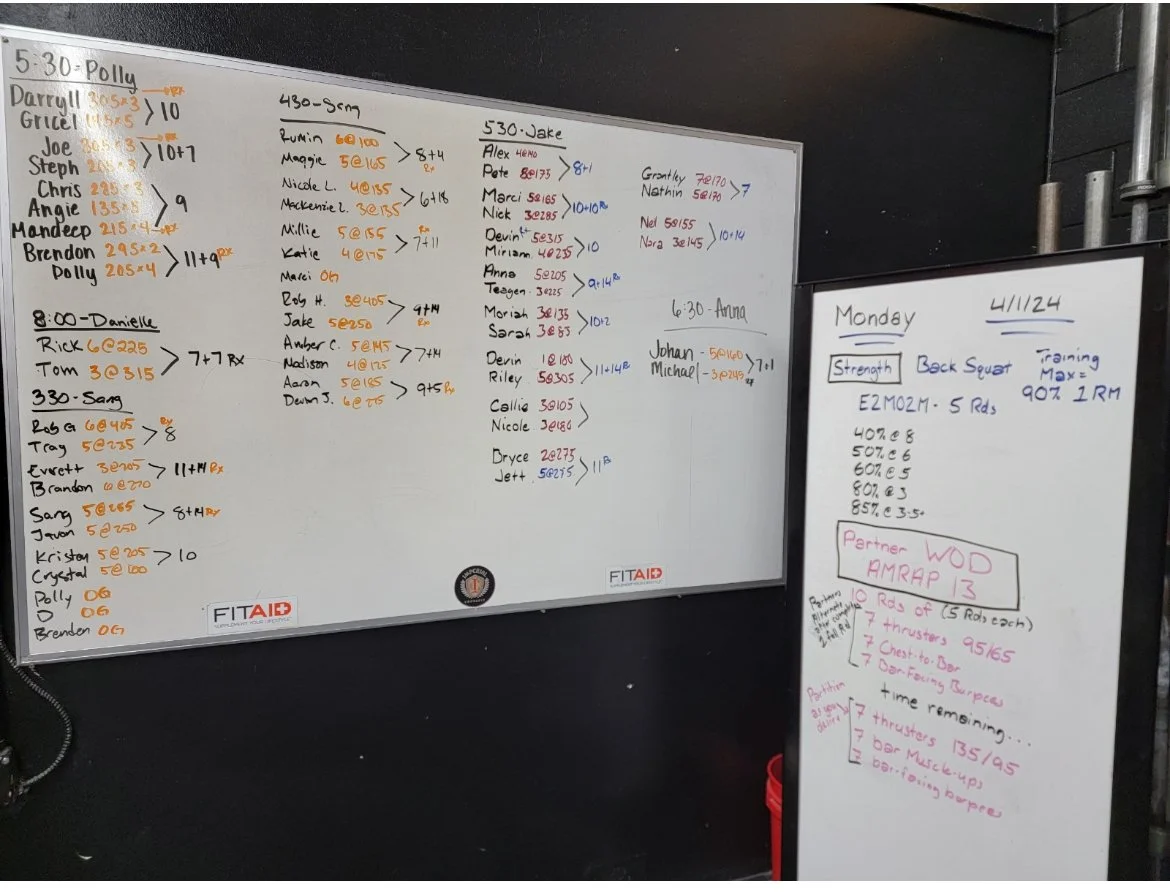 5:30-Polly
Darryll 305×3 → RX
Gricel 145×5 > 10
Joe 305×3 → RX
Steph > 10+7
Chris 225×3
Angie 135×5 > 9
Mandeep 215×4 → RX
Brendon 295×2
Polly 205×4 > 11+9 RX
8:00-Danielle
Rick 6@225
Tom 3@315 > 7+7 Rx
330-Sang
Rob G 6@405
Tray 5@235 > 8 Rx
Everett 3@205
Brandon @270 > 11+14 Rx
Sang 5@265
Javon 5@250 > 8+14 Rx
Kristen 5@205
Crystal 5@100 > 10
Polly OG
D OG
Brenden OG
430-Sang
Rumin 6@100
Maggie 5@165 > 8+4 Rx
Nicole L. 4@135
Mackenzie L. 3@135 > 6+18
Millie 5@155
Katie 4@175 > 7+11 Rx
Marci OG
Rob H. 3@405
Jake 5@250 > 9+14 Rx
Amber C. 5@145
Madison 4@175 > 7+14
Aaron 5@185
Devon J. 6@275 > 9+5 Rx
530-Jake
Alex 4@140
Pete 8@175 > 8+1
Marci 5@165
Nick 3@285 > 10+10 Rx
Devin 5@315
Miriam 4@235 > 10
Anna 5@205
Teagen 3@225 > 9+14 Rx
Moriah 3@135
Sarah 3@83 > 10+2
Devin 1@180
Riley 5@305 > 11+14 R
Callie 3@105
Nicole 3@180 >
Bryce 2@275
Jett 5@275 > 11 R
Grantley 7@170
Nathin 5@170 > 7
Nel 5@155
Nora 3@145 > 10+14
6:30-Anna
Johan - 5@160
Michael - 3@245 > 7+1
FITAID
FITAID
Monday 4/1/24
Strength Back Squat Training
Max =
90% 1RM
E2MO2M - 5 Rds
40% @ 8
50% @ 6
60% @ 5
80% @ 3
85% @ 3-5+
Partner WOD
AMRAP 13
10 Rds of (5 Rds each)
Partners
Alternate
after complete
1 full Rd
7 thrusters 95/65
7 Chest-to-Bar
7 Bar-Facing Burpees
time remaining...
Partition
as you
desire
7 thrusters 135/95
7 bar Muscle-ups
7 bar-facing burpees